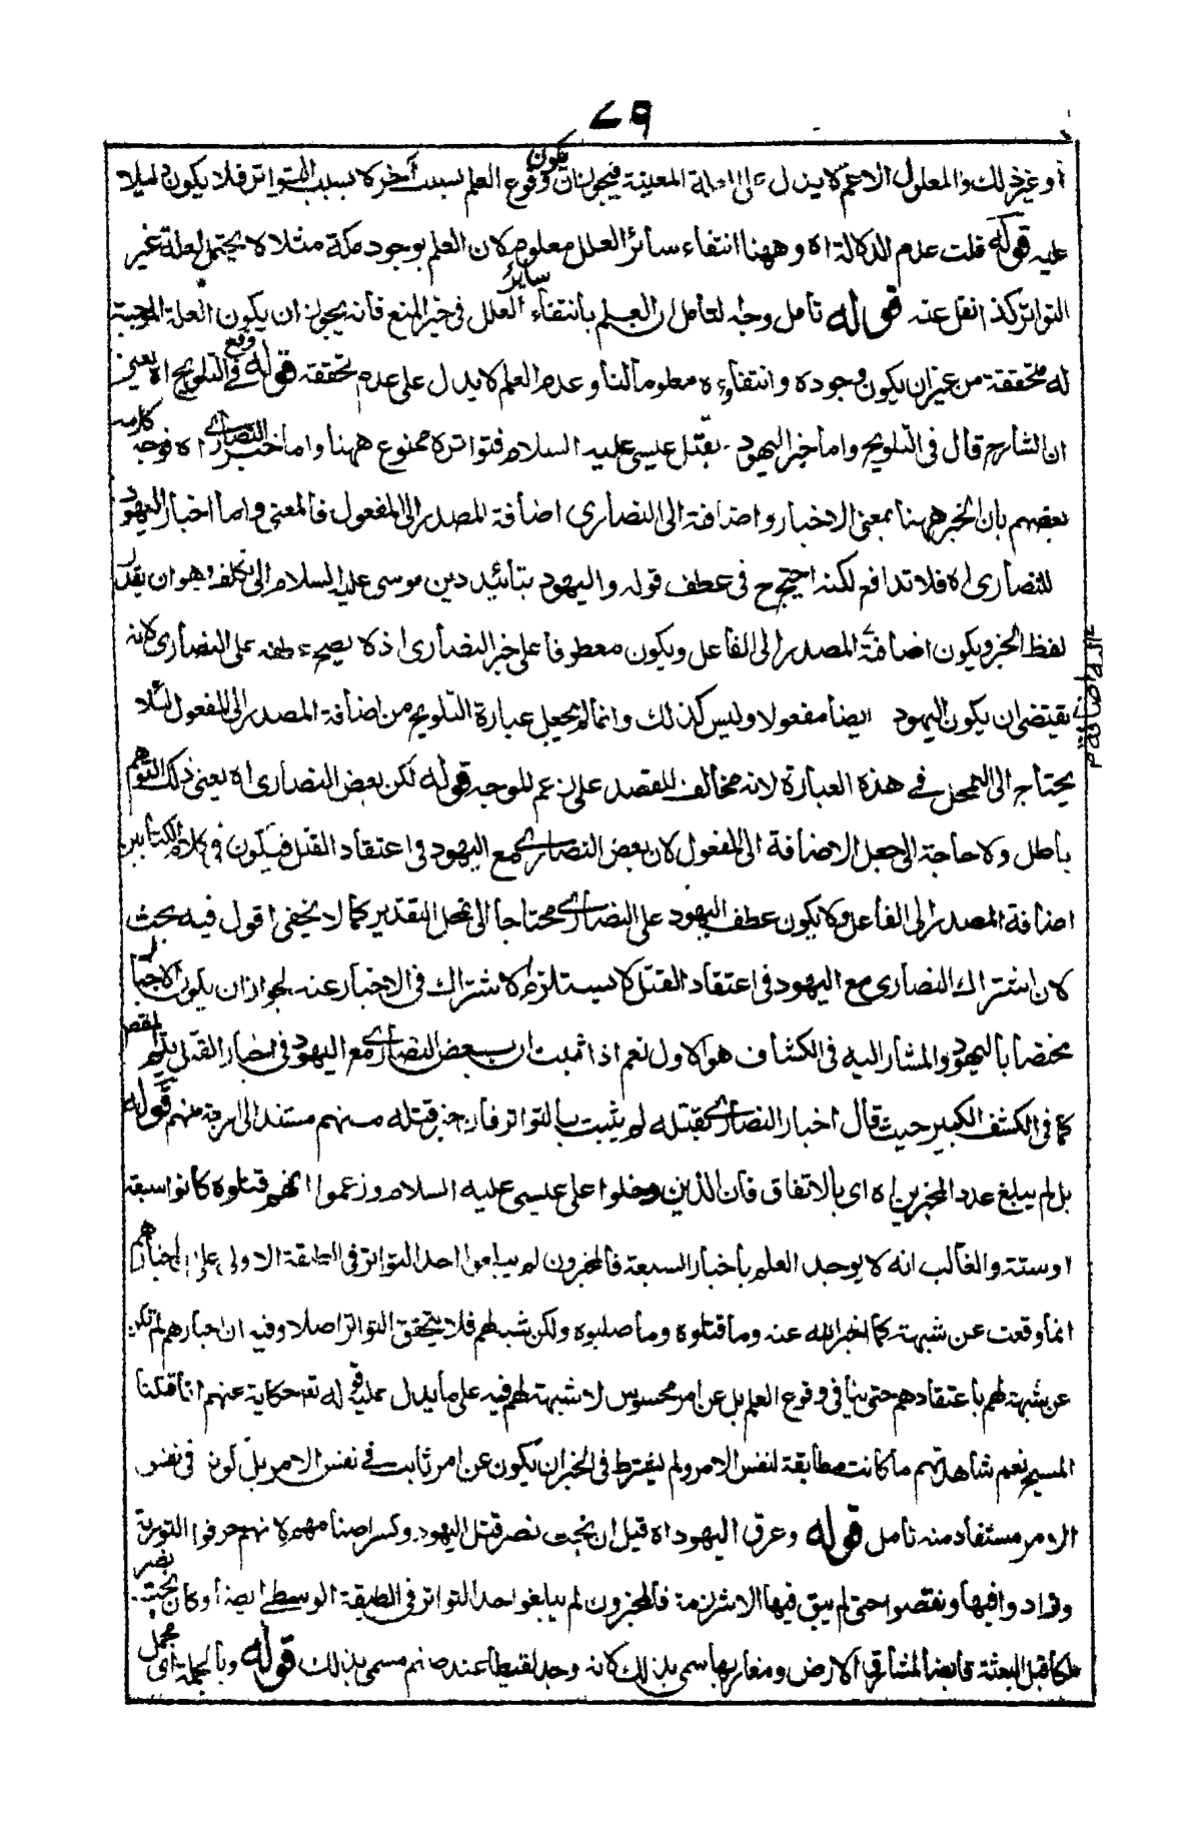 ٧٩
أو غير ذلك والمعلول الاعم لا يدل على العلة المعينة فيجوز ان يكون وقوع العلم بسبب آخر لا بسبب التواتر فلا يكون دليلا
عليه قوله قلت عدم الدلالة اه وههنا انتفاء سائر العلل معلوم لان العلم بوجود مكة مثلا لا يحتمل لعلة غير
التواتر كذا نقل عنه قوله تأمل وجه لتأمل ان العلم بانتفاء سائر العلل في حيز المنع فانه يجوز ان يكون العلة الموجبة
له متحققة من غير ان يكون وجوده وانتفاؤه معلوما لنا وعدم العلم لا يدل على عدم تحققه قوله وقع في التلويح اه يعني
ان الشارح قال في التلويح واما خبر اليهود بقتل عيسى عليه السلام فتواتره ممنوع ههنا واما خبر النصارى اه فوجه كلامه
بعضهم بان الخبر ههنا بمعنى الاخبار واضافة الى النصارى اضافة المصدر الى المفعول فالمعنى واما اخبار اليهود
للنصارى اه فلا تدافع لكنه احتيج في عطف قوله واليهود بتأييد دين موسى عليه السلام الى تكلف وهو ان يقدر
لفظ الخبر ويكون اضافة المصدر الى الفاعل ويكون معطوفا على خبر النصارى اذ لا يصح عطفه على النصارى لانه
يقتضي ان يكون اليهود ايضا مفعولا وليس كذلك وانما لم يجعل عبارة التلويح من اضافة المصدر الى المفعول لئلا
يحتاج الى التمحل في هذه العبارة لانه مخالف للقصد على زعم للموجه قوله لكن بعض النصارى اه يعني ذلك التوهم
باطل ولا حاجة الى جعل الاضافة الى المفعول لان بعض النصارى مع اليهود في اعتقاد القتل فيكون في كلام الكتابين
اضافة المصدر الى الفاعل ولا يكون عطف اليهود على النصارى محتاجا الى تمحل التقدير كما لا يخفى اقول فيه بحث
لان اشتراك النصارى مع اليهود في اعتقاد القتل لا يستلزم الاشتراك في الاخبار عنه لجواز ان يكون الاخبار
مختصا باليهود والمشار اليه في الكشاف هو الاول نعم اذا ثبت ان بعض النصارى مع اليهود في اخبار القتل يتم المقصد
كما في الكشف الكبير حيث قال اخبار النصارى بقتله لم يثبت بالتواتر فان خبر قتله منهم مستند الى اربعة منهم قوله
بل لم يبلغ عدد المخبرين اه اى بالاتفاق فان الذين دخلوا على عيسى عليه السلام وزعموا انهم قتلوه كانوا سبعة
او ستة والغالب انه لا يوجد العلم باخبار السبعة فالمخبرون لم يبلغوا احد التواتر في الطبقة الاولى على ان اخبارهم
انما وقعت عن شبهة كما اخبر الله عنه وما قتلوه وما صلبوه ولكن شبه لهم فلا يتحقق التواتر اصلا وفيه ان اخبارهم لم تكن
عن شبهة لهم باعتقادهم حتى ينافي وقوع العلم بل عن امر محسوس لا شبهة لهم فيه على ما يدل عليه قوله تع حكاية عنهم انا قتلنا
المسيح نعم شاهدتهم ما كانت مطابقة لنفس الامر ولم يشترط في الخبر ان يكون عن امر ثابت في نفس الامر بل كونه في نفس
الامر مستفاد منه تامل قوله وعرق اليهود اه قيل ان بخت نصر قتل اليهود وكسر اصنامهم لانهم حرفوا التورية
وزادوا فيها ونقصوا حتى لم يبق فيها الا شرذمة فالمخبرون لم يبلغوا حد التواتر في الطبقة الوسطى ايضا وكان بخت نصر
ملكا قبل البعثة قابضا لمشارق الارض ومغاربها سمى بذلك لانه وجد لقيطا عند صنم مسمى بذلك قوله وبالجملة اى مجمل